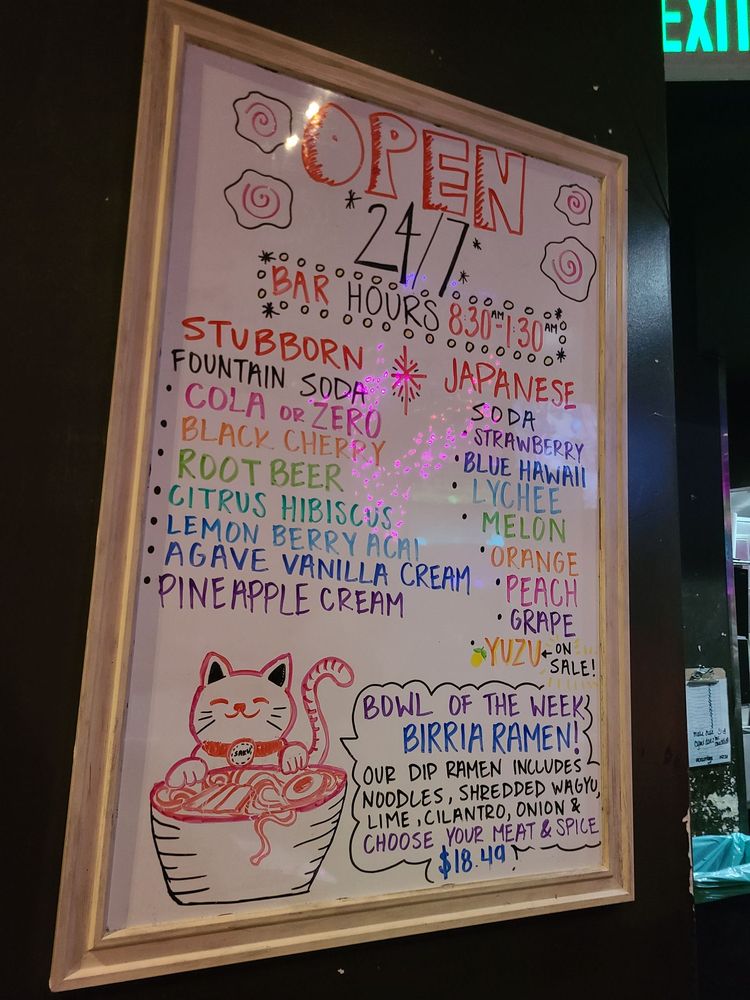 EXIT
OPEN
*24/7*
BAR HOURS 8:30AM-1:30AM
STUBBORN
FOUNTAIN SODA
• COLA OR ZERO
• BLACK CHERRY
• ROOT BEER
• CITRUS HIBISCUS
• LEMON BERRY ACAI
• AGAVE VANILLA CREAM
• PINEAPPLE CREAM
JAPANESE
SODA
• STRAWBERRY
• BLUE HAWAII
• LYCHEE
• MELON
• ORANGE
• PEACH
• GRAPE
• YUZU ← ON
SALE!
BOWL OF THE WEEK
BIRRIA RAMEN!
OUR DIP RAMEN INCLUDES
NOODLES, SHREDDED WAGYU,
LIME, CILANTRO, ONION &
CHOOSE YOUR MEAT & SPICE
$18.49